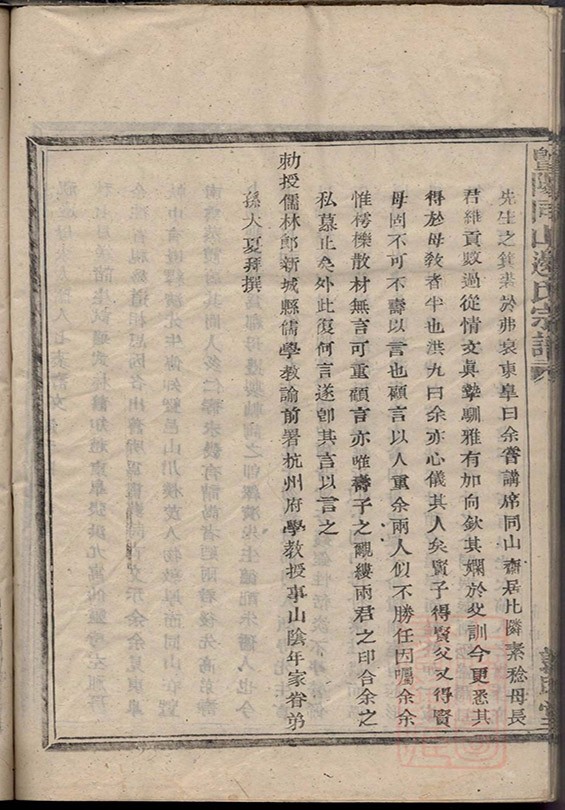 先生之箕裘於弗衰東臯曰余嘗講席同山齋居比隣素稔母長
君維貢數過從情文眞摯馴雅有加向欽其嫻於父訓今更悉其
得於母敎者半也洪九曰余亦心儀其人矣賢子得賢父又得賢
母固不可不壽以言也顧言以人重余兩人似不勝任因囑余余
惟樗櫟散材無言可重顧言亦唯壽子之覼縷兩君之印合余之
私慕止矣外此復何言遂卽其言以言之
勅授儒林郎新城縣儒學敎諭前署杭州府學敎授事山陰年家眷弟
孫大夏拜撰
暨陽同山邊氏宗譜